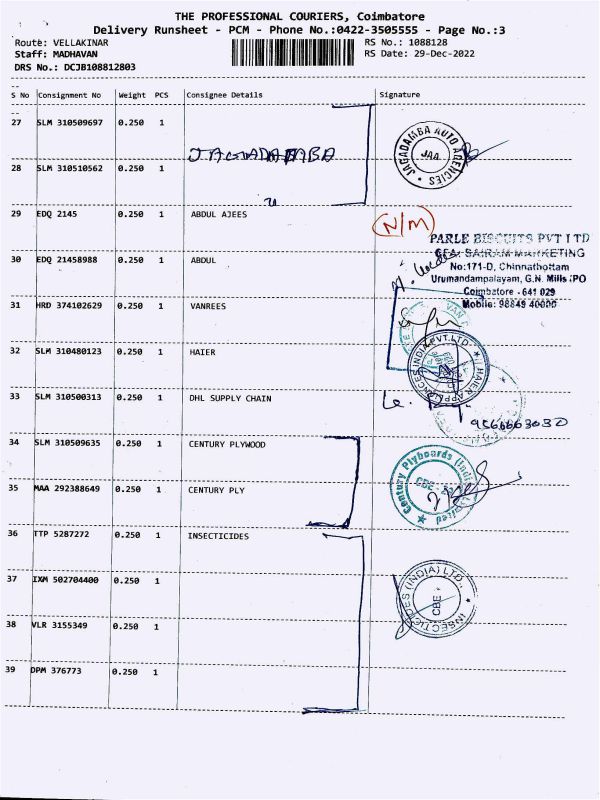 THE PROFESSIONAL COURIERS, Coimbatore
Delivery Runsheet - PCM - Phone No.:0422-3505555 - Page No.:3
Route: VELLAKINAR RS No.: 1088128
Staff: MADHAVAN RS Date: 29-Dec-2022
DRS No.: DCJB108812803
S No Consignment No Weight PCS Consignee Details Signature
27 SLM 310509697 0.250 1
JAGADAMBA
JAGADAMBA AUTO AGENCIES
JAA
28 SLM 310510562 0.250 1
29 EDQ 2145 0.250 1 ABDUL AJEES N/M
PARLE BISCUITS PVT LTD
C&FA: SAIRAM MARKETING
No:171-D, Chinnathottam
Urumandampalayam, G.N. Mills (PO
Coimbatore - 641 029
Mobile: 98849 40000
30 EDQ 21458988 0.250 1 ABDUL
31 HRD 374102629 0.250 1 VANREES
32 SLM 310480123 0.250 1 HAIER
HAIER APPLIANCES INDIA PVT.LTD
33 SLM 310500313 0.250 1 DHL SUPPLY CHAIN
34 SLM 310509635 0.250 1 CENTURY PLYWOOD
Century Plyboards (India) Limited
CBE
35 MAA 292388649 0.250 1 CENTURY PLY
36 TTP 5287272 0.250 1 INSECTICIDES
INSECTICIDES (INDIA) LTD.
CBE
37 IXM 502704400 0.250 1
38 VLR 3155349 0.250 1
39 DPM 376773 0.250 1